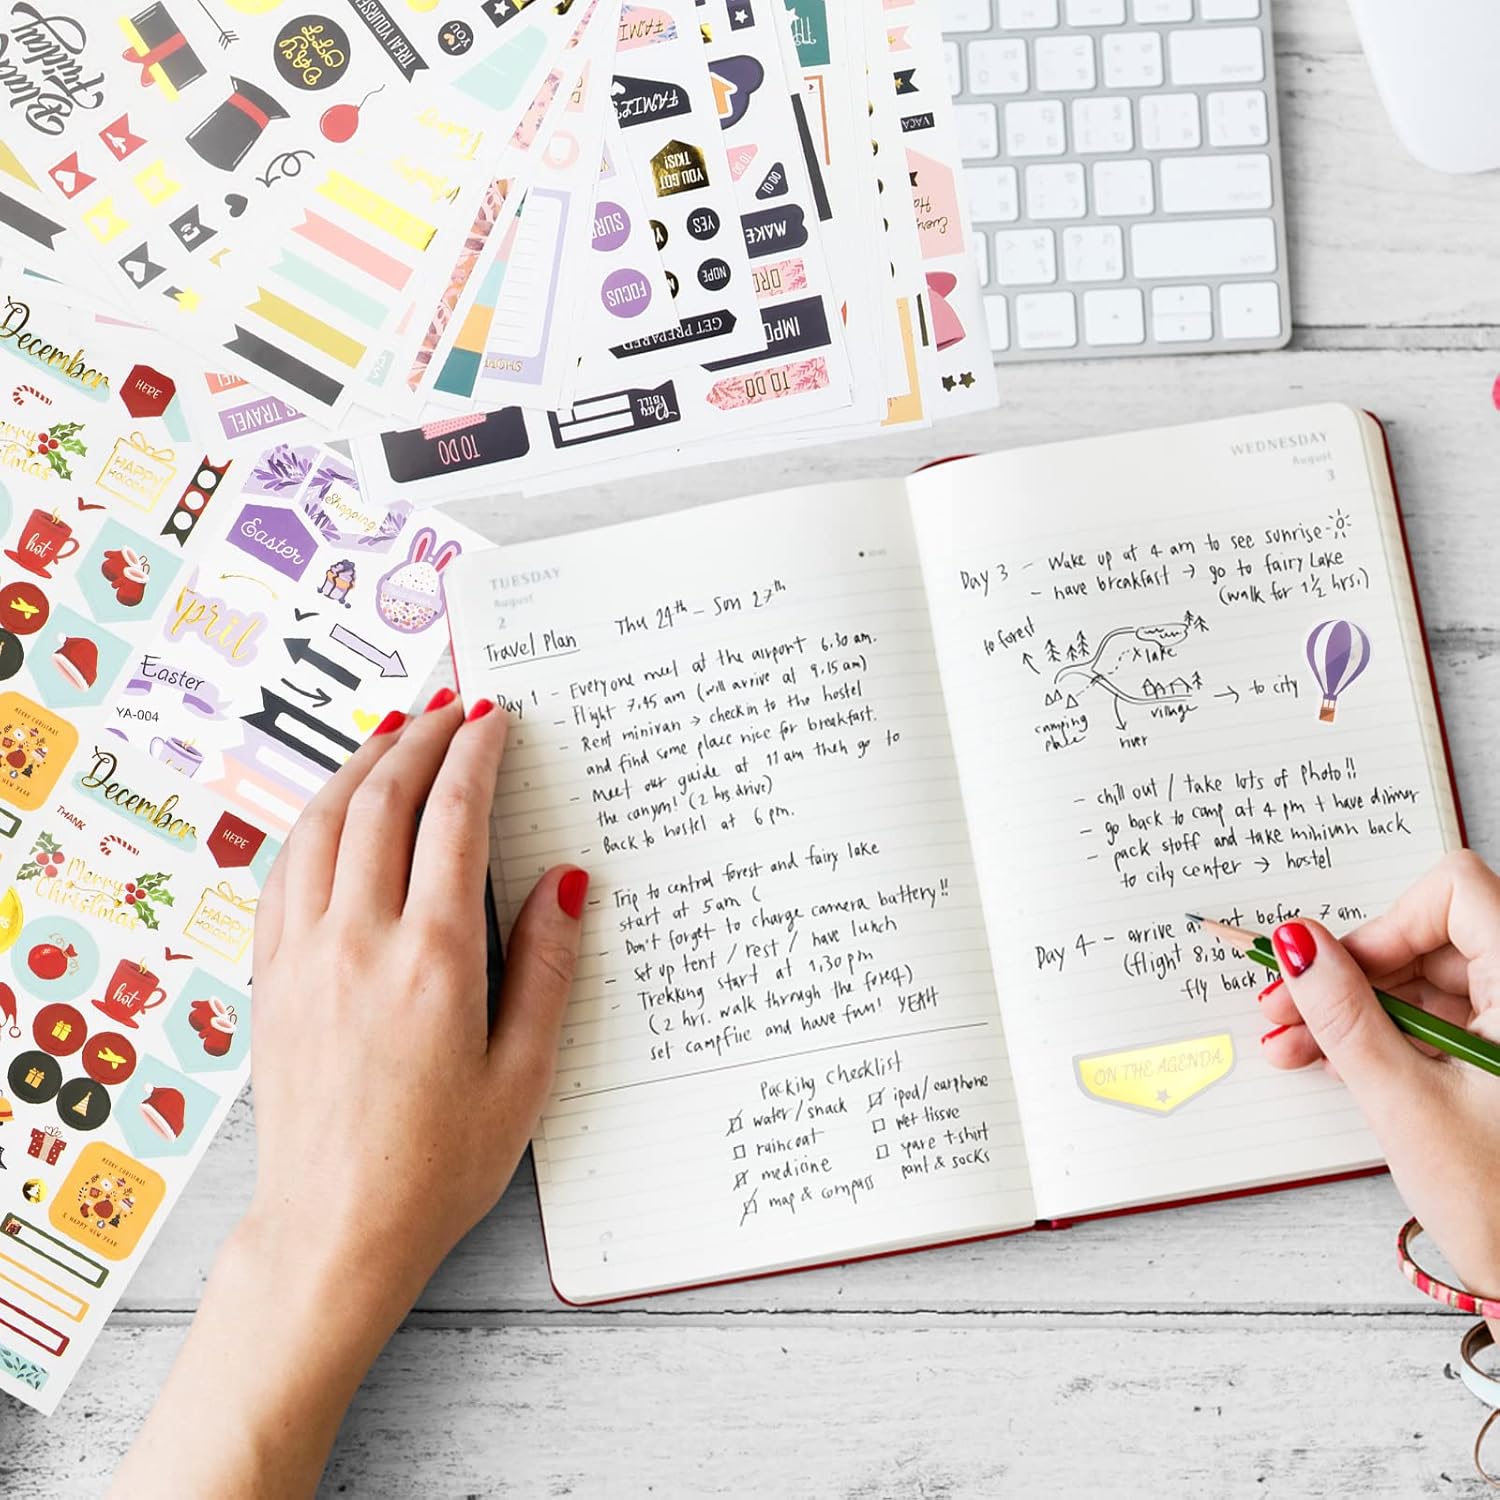 Black Friday
DAY OFF
TREAT YOURSELF
I YOU
FAMILY
YOU GOT THIS!
YES
NOPE
FOCUS
GET PREPARED
TO DO
MAKE
TO DO
Pay BILL
TO DO
TRAVEL
December
HERE
Merry Christmas
HAPPY HOLIDAY
hot
Shopping
Easter
April
Easter
YA-004
MERRY CHRISTMAS
December
THANK
HERE
Merry Christmas
HAPPY HOLIDAY
hot
MERRY CHRISTMAS
& HAPPY NEW YEAR
TUESDAY
August
2
Travel Plan
Thu 24th - Sun 27th
Day 1 - Everyone meet at the airport 6.30 am.
- Flight 7.45 am (will arrive at 9.15 am)
- Rent minivan → check in to the hostel
and find some place nice for breakfast.
- meet our guide at 11 am then go to
the canyon! (2 hrs drive)
- Back to hostel at 6 pm.
- Trip to central forest and fairy lake
start at 5am (
- Don't forget to charge camera battery!!
- set up tent / rest / have lunch
- Trekking start at 1.30 pm
(2 hrs. walk through the forest)
set campfire and have fun! YEAH
Packing Checklist
water/snack
ipod/earphone
raincoat
wet tissue
medicine
spare t-shirt
map & compass
pant & socks
WEDNESDAY
August
3
Day 3 - Wake up at 4 am to see sunrise
- have breakfast → go to fairy Lake
(walk for 1½ hrs.)
to forest
x lake
camping place
village
→ to city
river
- chill out / take lots of photo!!
- go back to camp at 4 pm + have dinner
- pack stuff and take minivan back
to city center → hostel
Day 4 - arrive before 7 am.
(flight 8.30
fly back
ON THE AGENDA